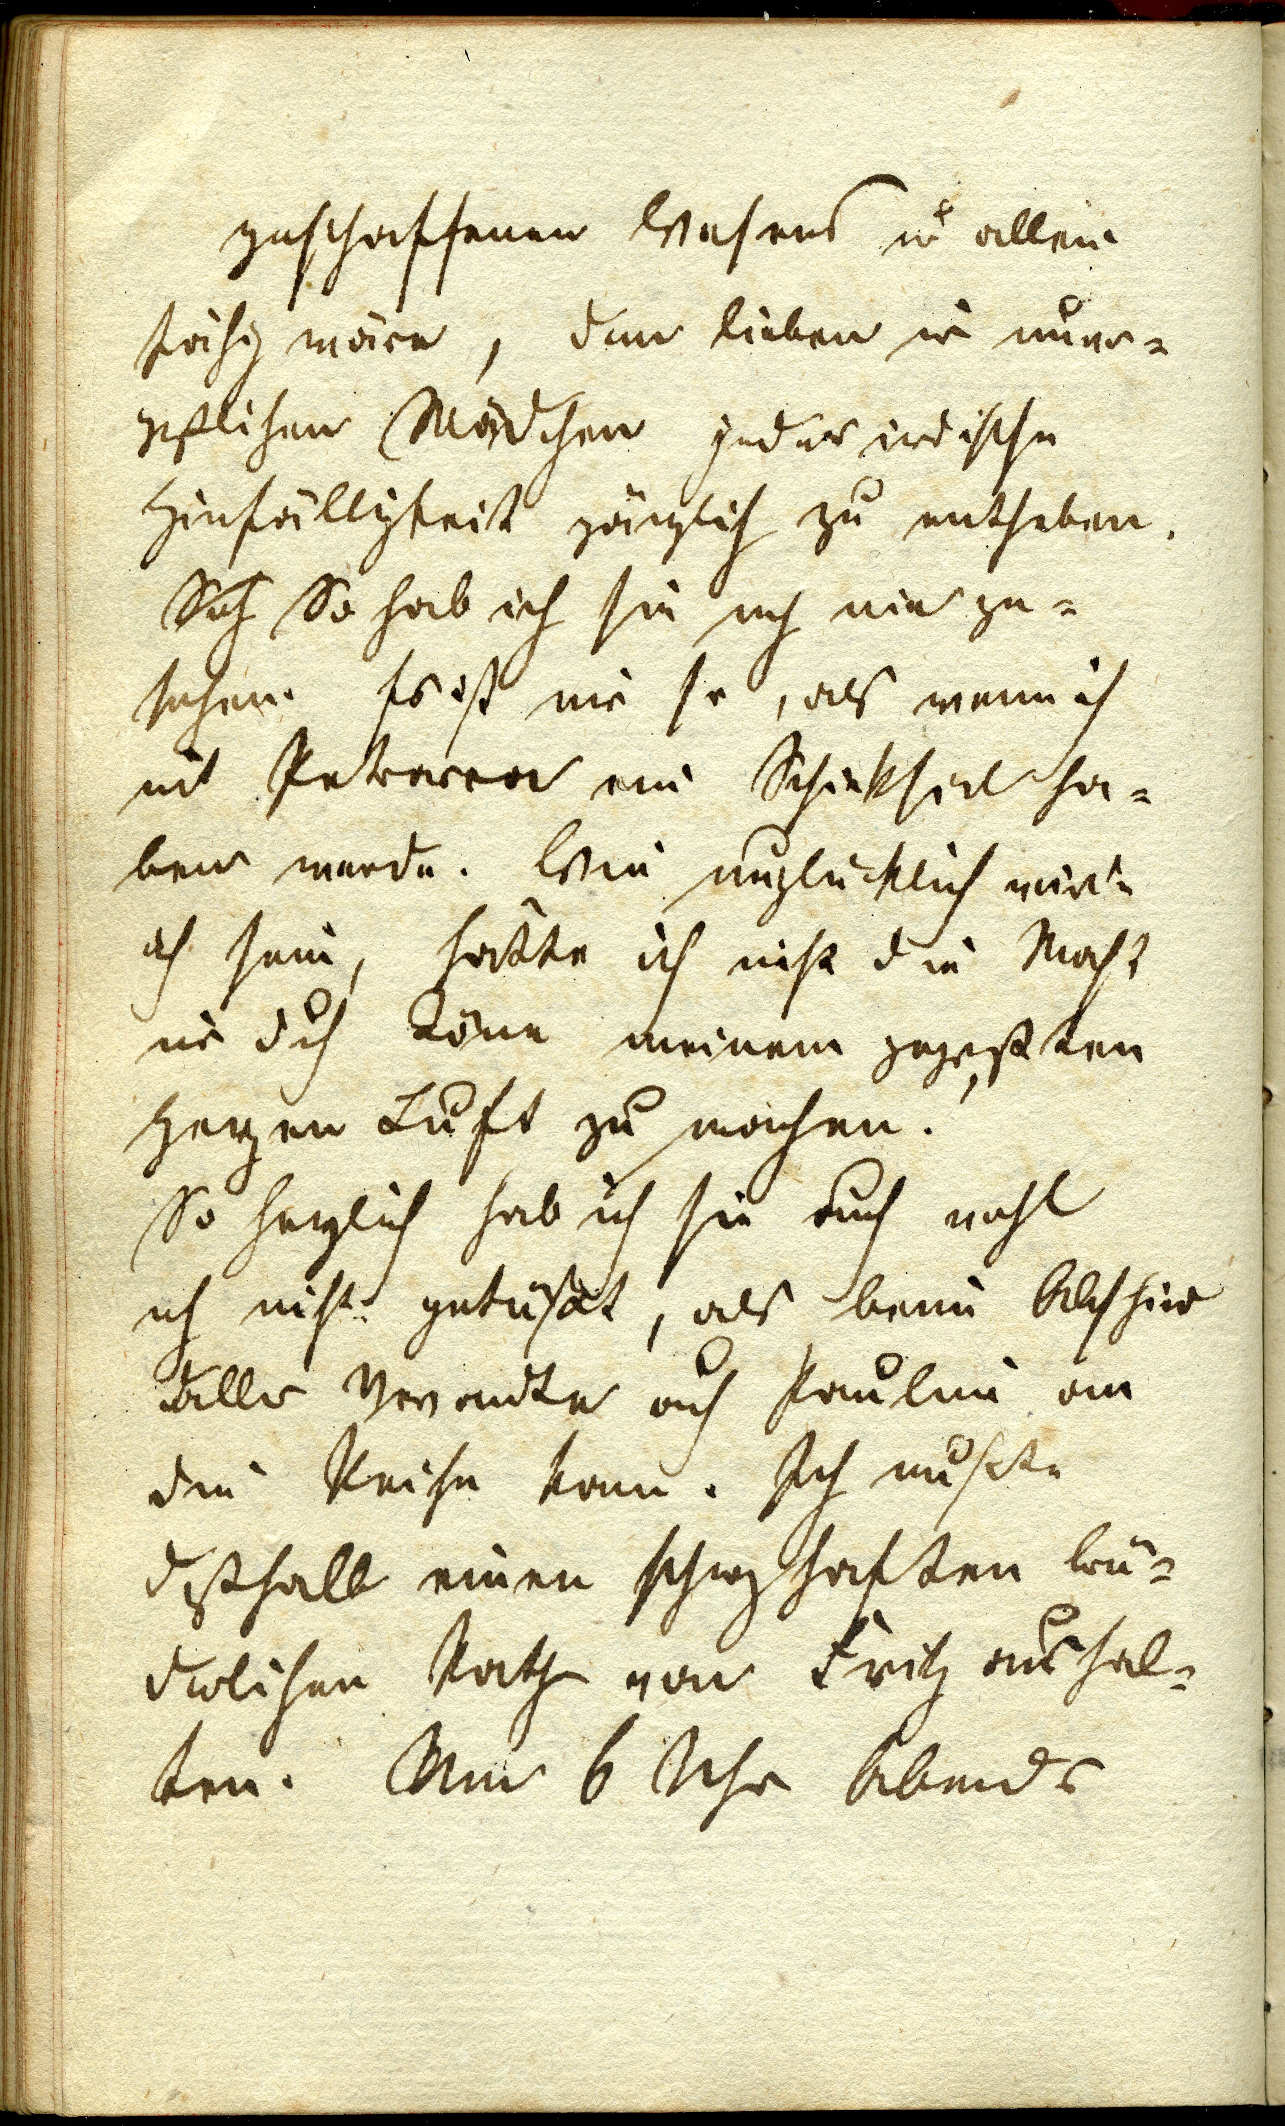 geschaffenen Wesens u allein
fähig wäre, dem lieben u unver-
geßlichen Mädchen jeder irdische
Hinfälligkeit gänzlich zu entheben.
So hab ich sie noch nie ge-
sehen. Es ist mir so, als wenn ich
mit Petrarca ein Schicksal ha-
ben werde. Wie unglücklich würde
ich sein, hätte ich nicht die Macht
mir durch Töne meinem gepreßten
Herzen Luft zu machen.
So herzlich hab ich sie auch wohl
noch nicht geküßt, als beim Abschied
aller Verwandten auch Pauline an
die Reihe kam. Ich mußte
deßhalb einen scherzhaften brü-
derlichen Rath von Fritz aushal-
ten. Um 6 Uhr Abends